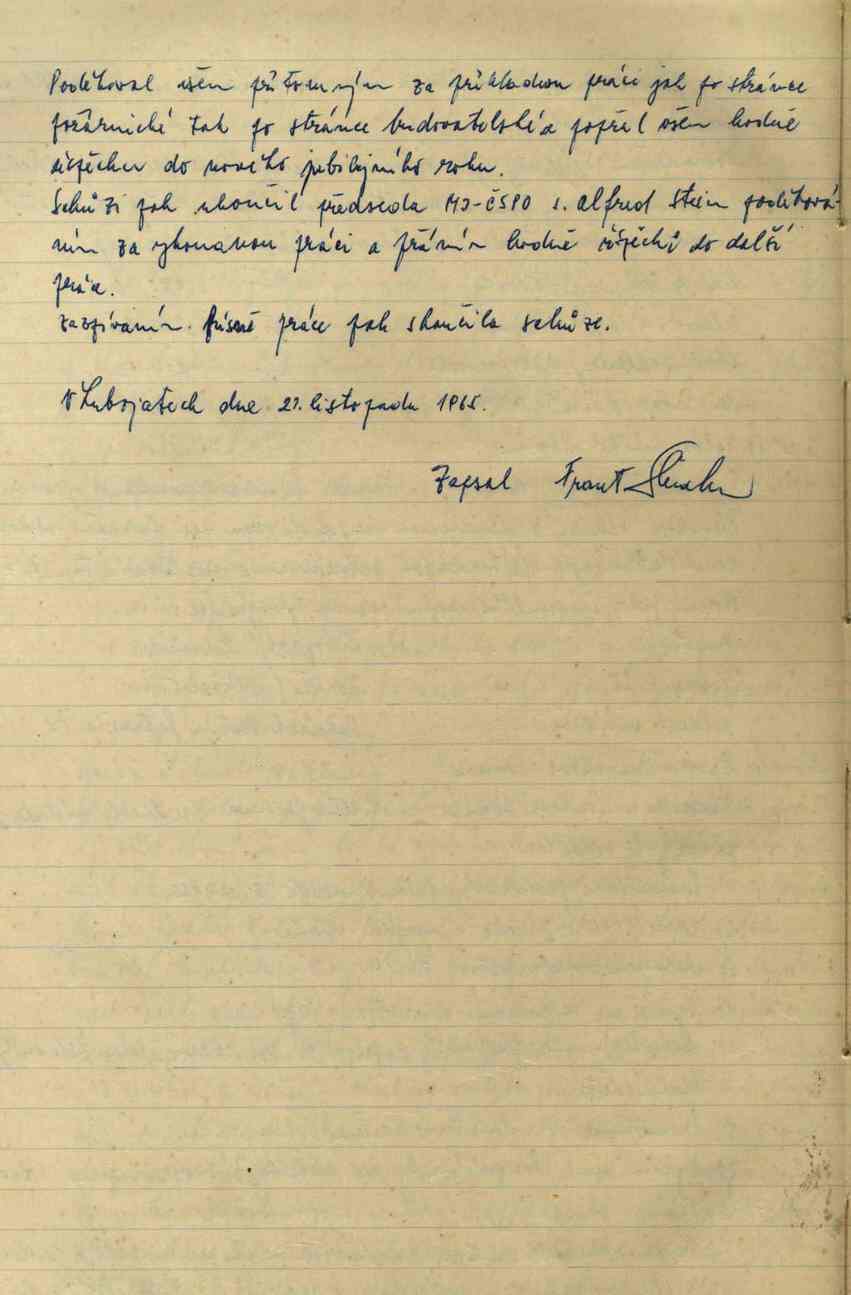 Poděkoval všem přítomným za příkladnou práci jak po stránce
požárnické tak po stránce budovatelské a popřel všem hodně
úspěchu do nového jubilejního roku.
Schůzi pak ukončil předseda MJ-ČSPO s. Alfred Stein poděková-
ním za vykonanou práci a přáním hodně úspěchů do další
práce.
Zazpíváním Písně práce pak skončila schůze.
V Lubojatech dne 27. listopadu 1965.
Zapsal Frant